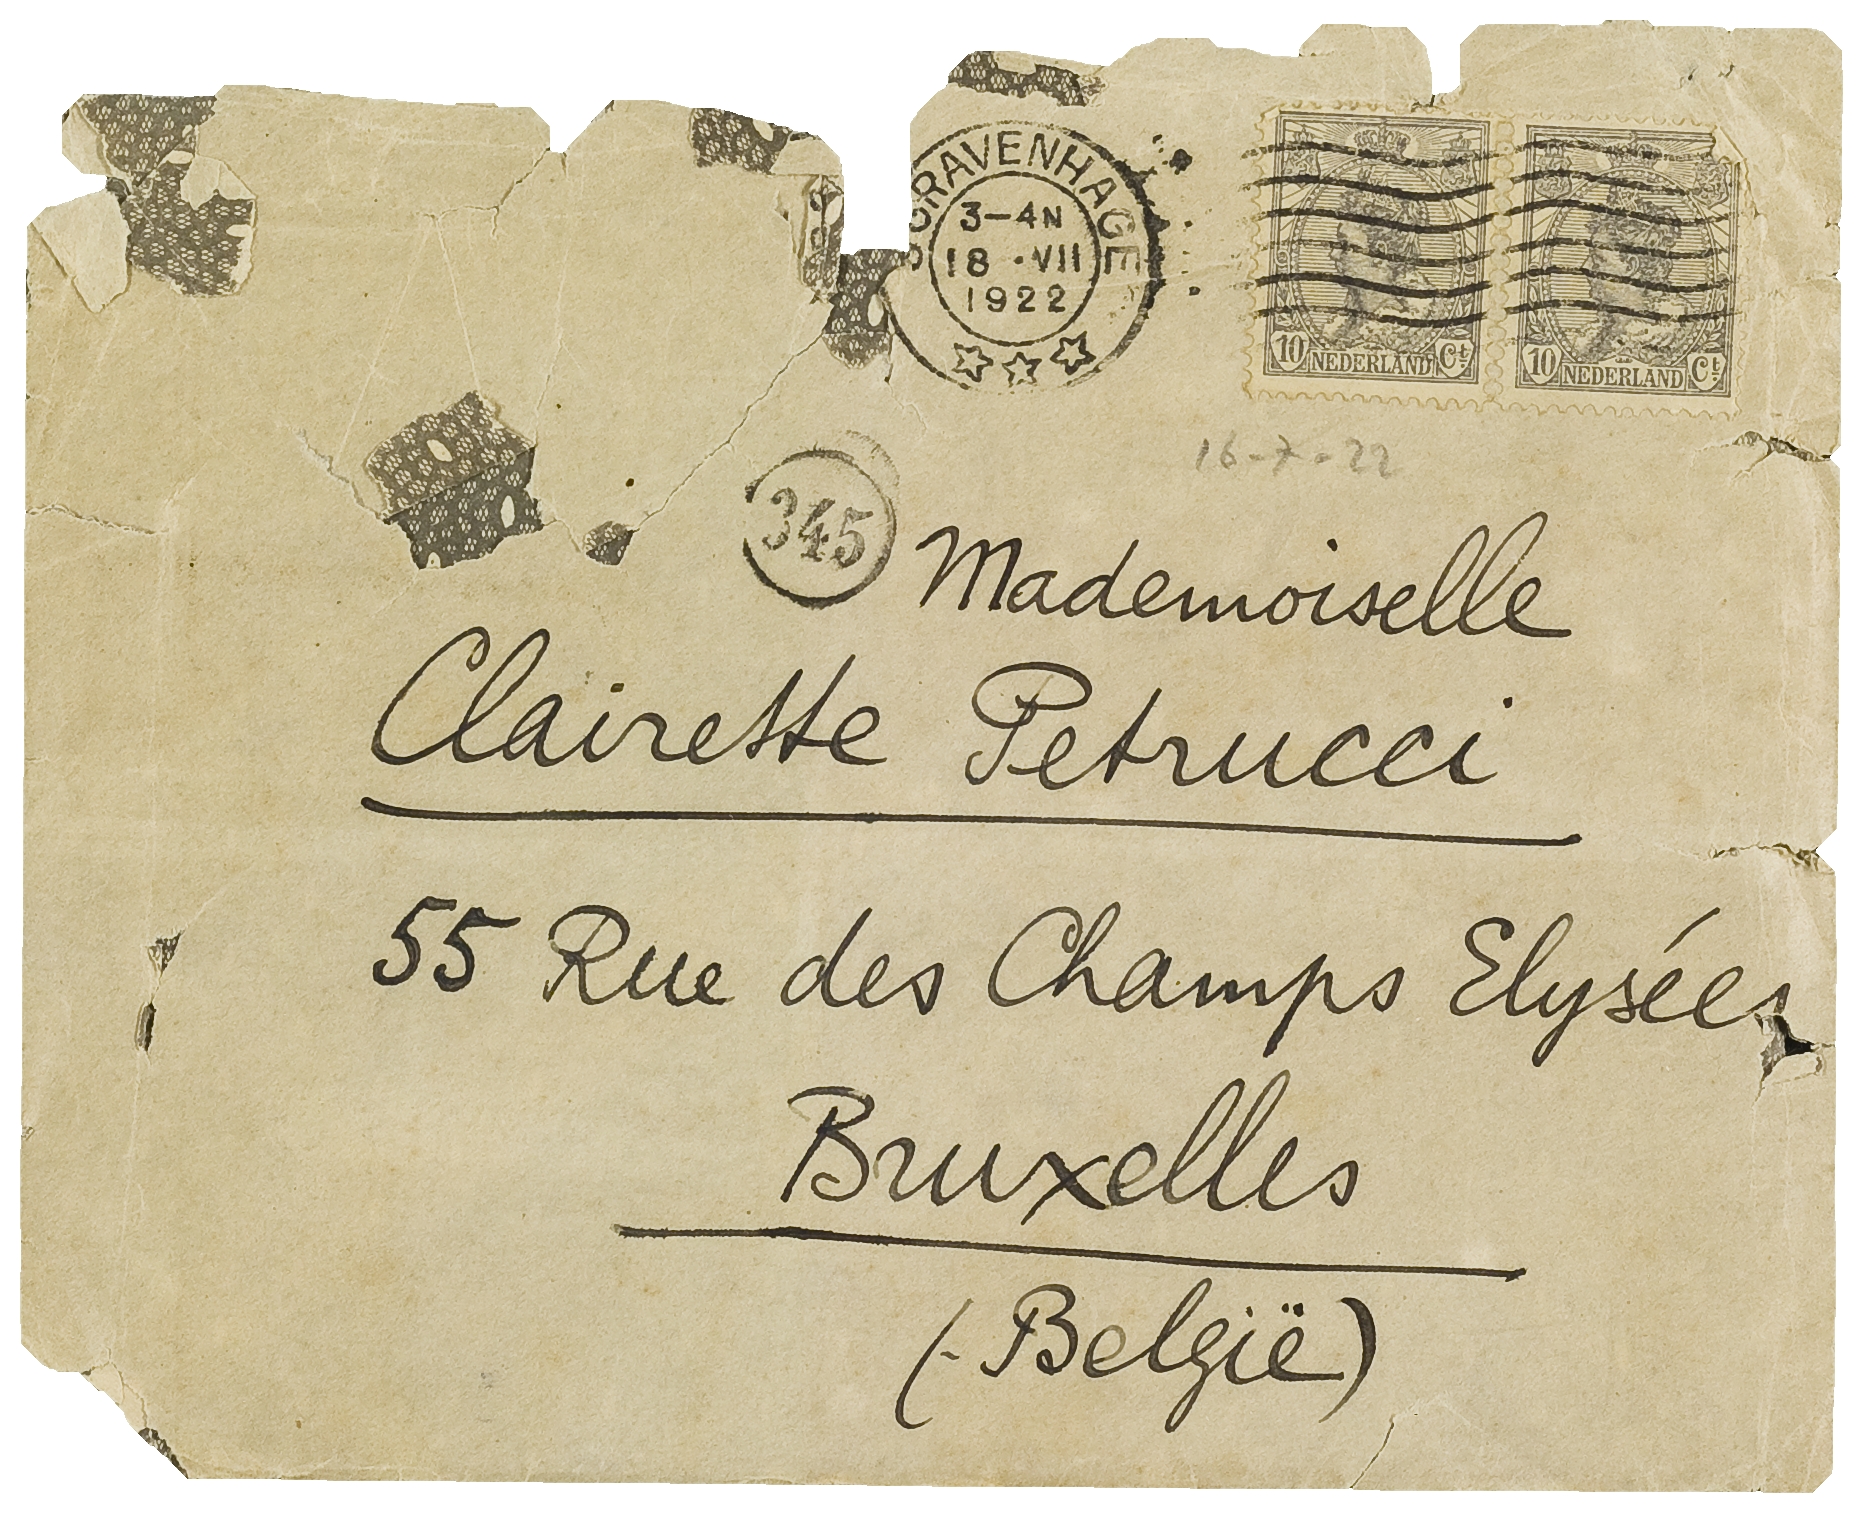 'S GRAVENHAGE
3-4N
18 ·VII
1922
10 NEDERLAND Ct
10 NEDERLAND Ct
16-7-22
345
Mademoiselle
Clairette Petrucci
55 Rue des Champs Elysées
Bruxelles
(-België)